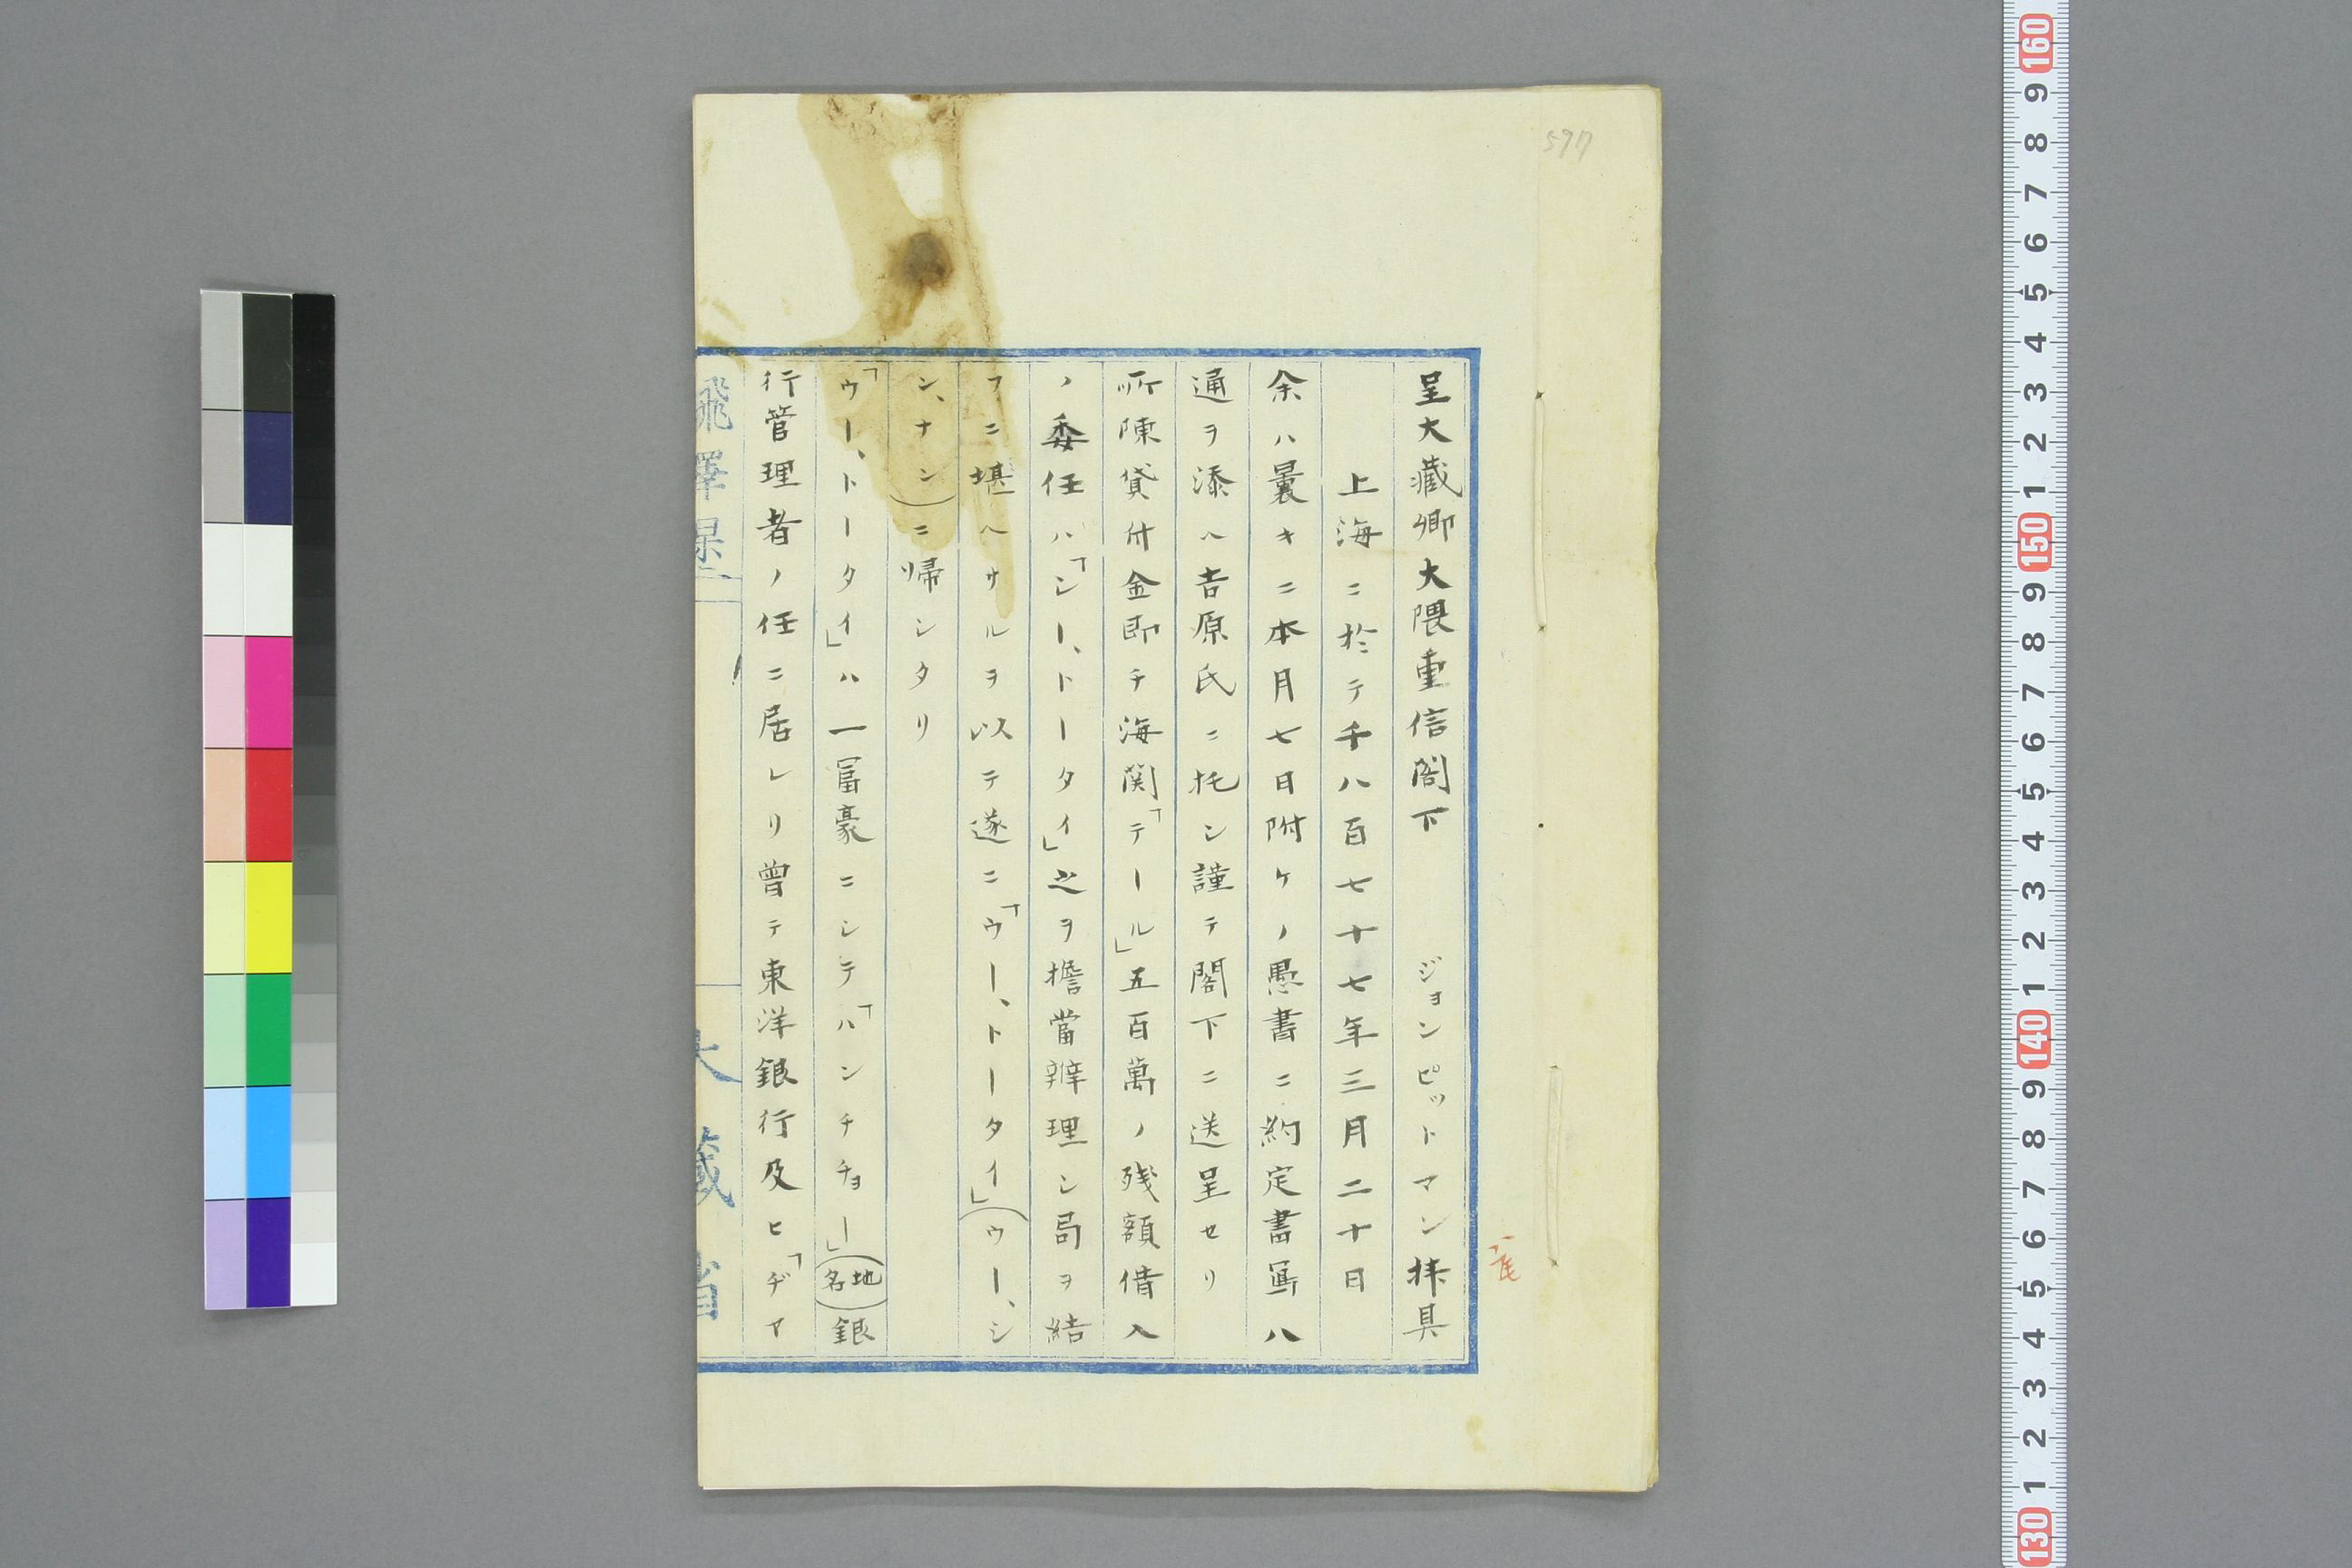 呈大藏卿大隈重信閣下　ジョンピットマン拝具
上海ニ於テ千八百七十七年三月二十日
余ハ曩キニ本月七日附ケノ愚書ニ約定書写八
通ヲ添ヘ吉原氏ニ托シ謹テ閣下ニ送呈セリ
所陳貸付金即チ海関「テール」五百萬ノ残額借入
ノ委任ハ「シー、トータイ」之ヲ擔當辨理シ局ヲ結
フニ堪ヘサルヲ以テ遂ニ「ウー、トータイ」(ウー、シ
ン、ナン)ニ帰シタリ
「ウー、トータイ」ハ一冨豪ニシテ「ハンチチョー」(地名)銀
行管理者ノ任ニ居レリ曽テ東洋銀行及ヒ「ヂア
大藏省
597
160
9
8
7
6
5
4
3
2
1
150
9
8
7
6
5
4
3
2
1
140
9
8
7
6
5
4
3
2
1
130